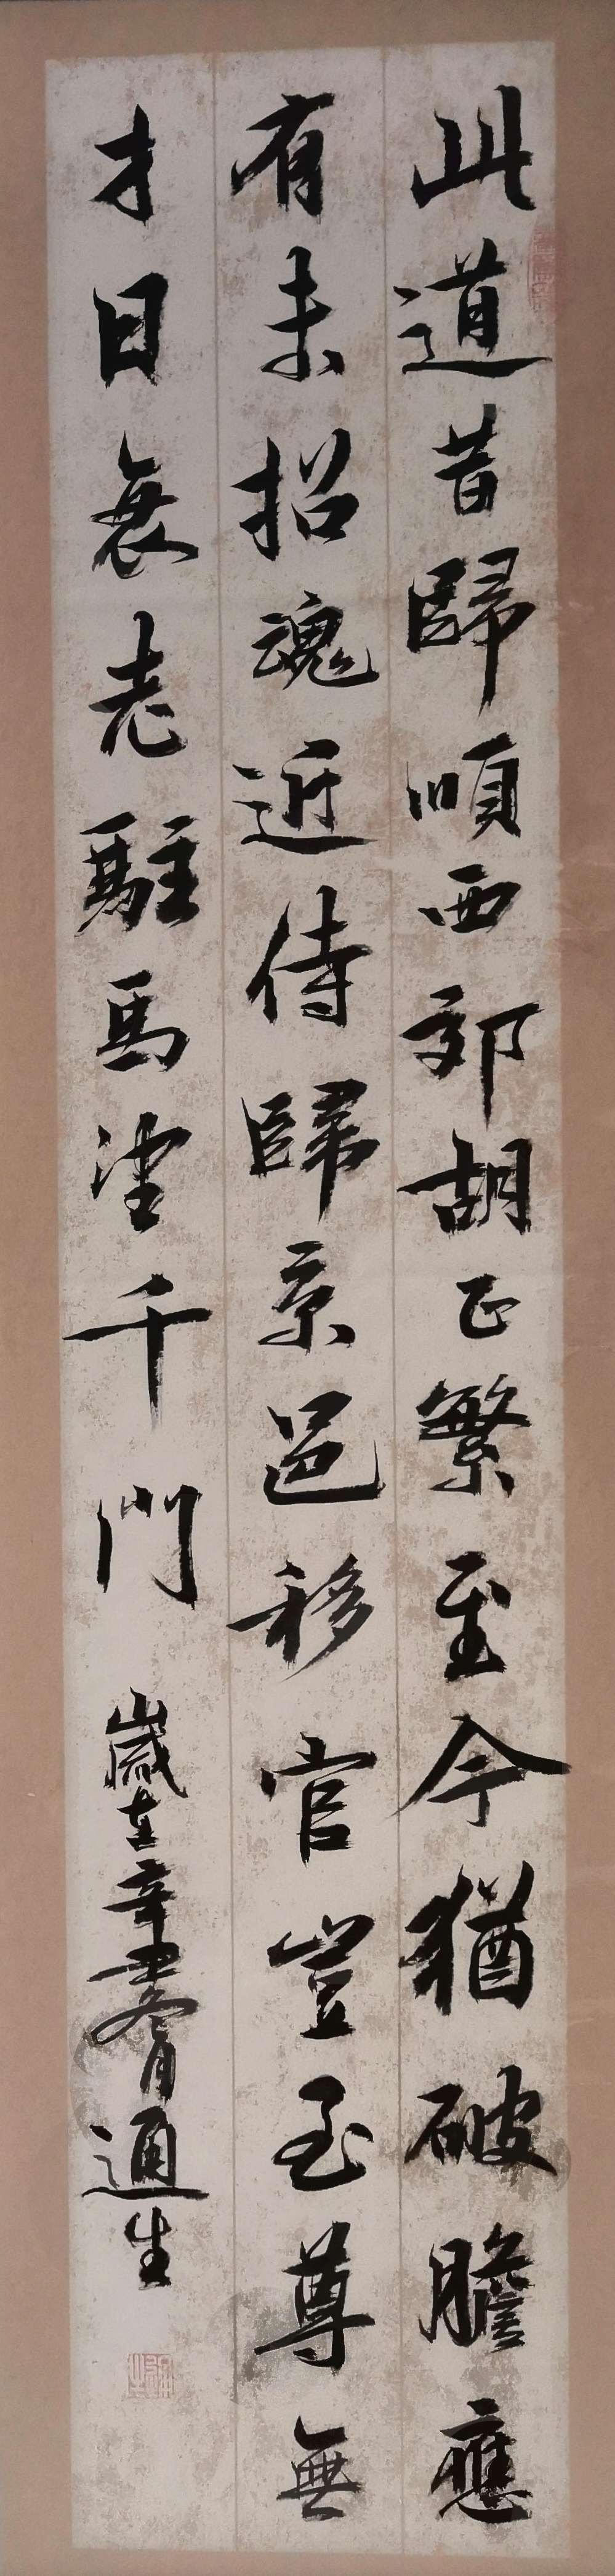 此道昔歸順西郊胡正繁至今猶破膽應
有未招魂近侍歸京邑移官豈至尊無
才日衰老駐馬望千門
歲在辛丑冬月通生